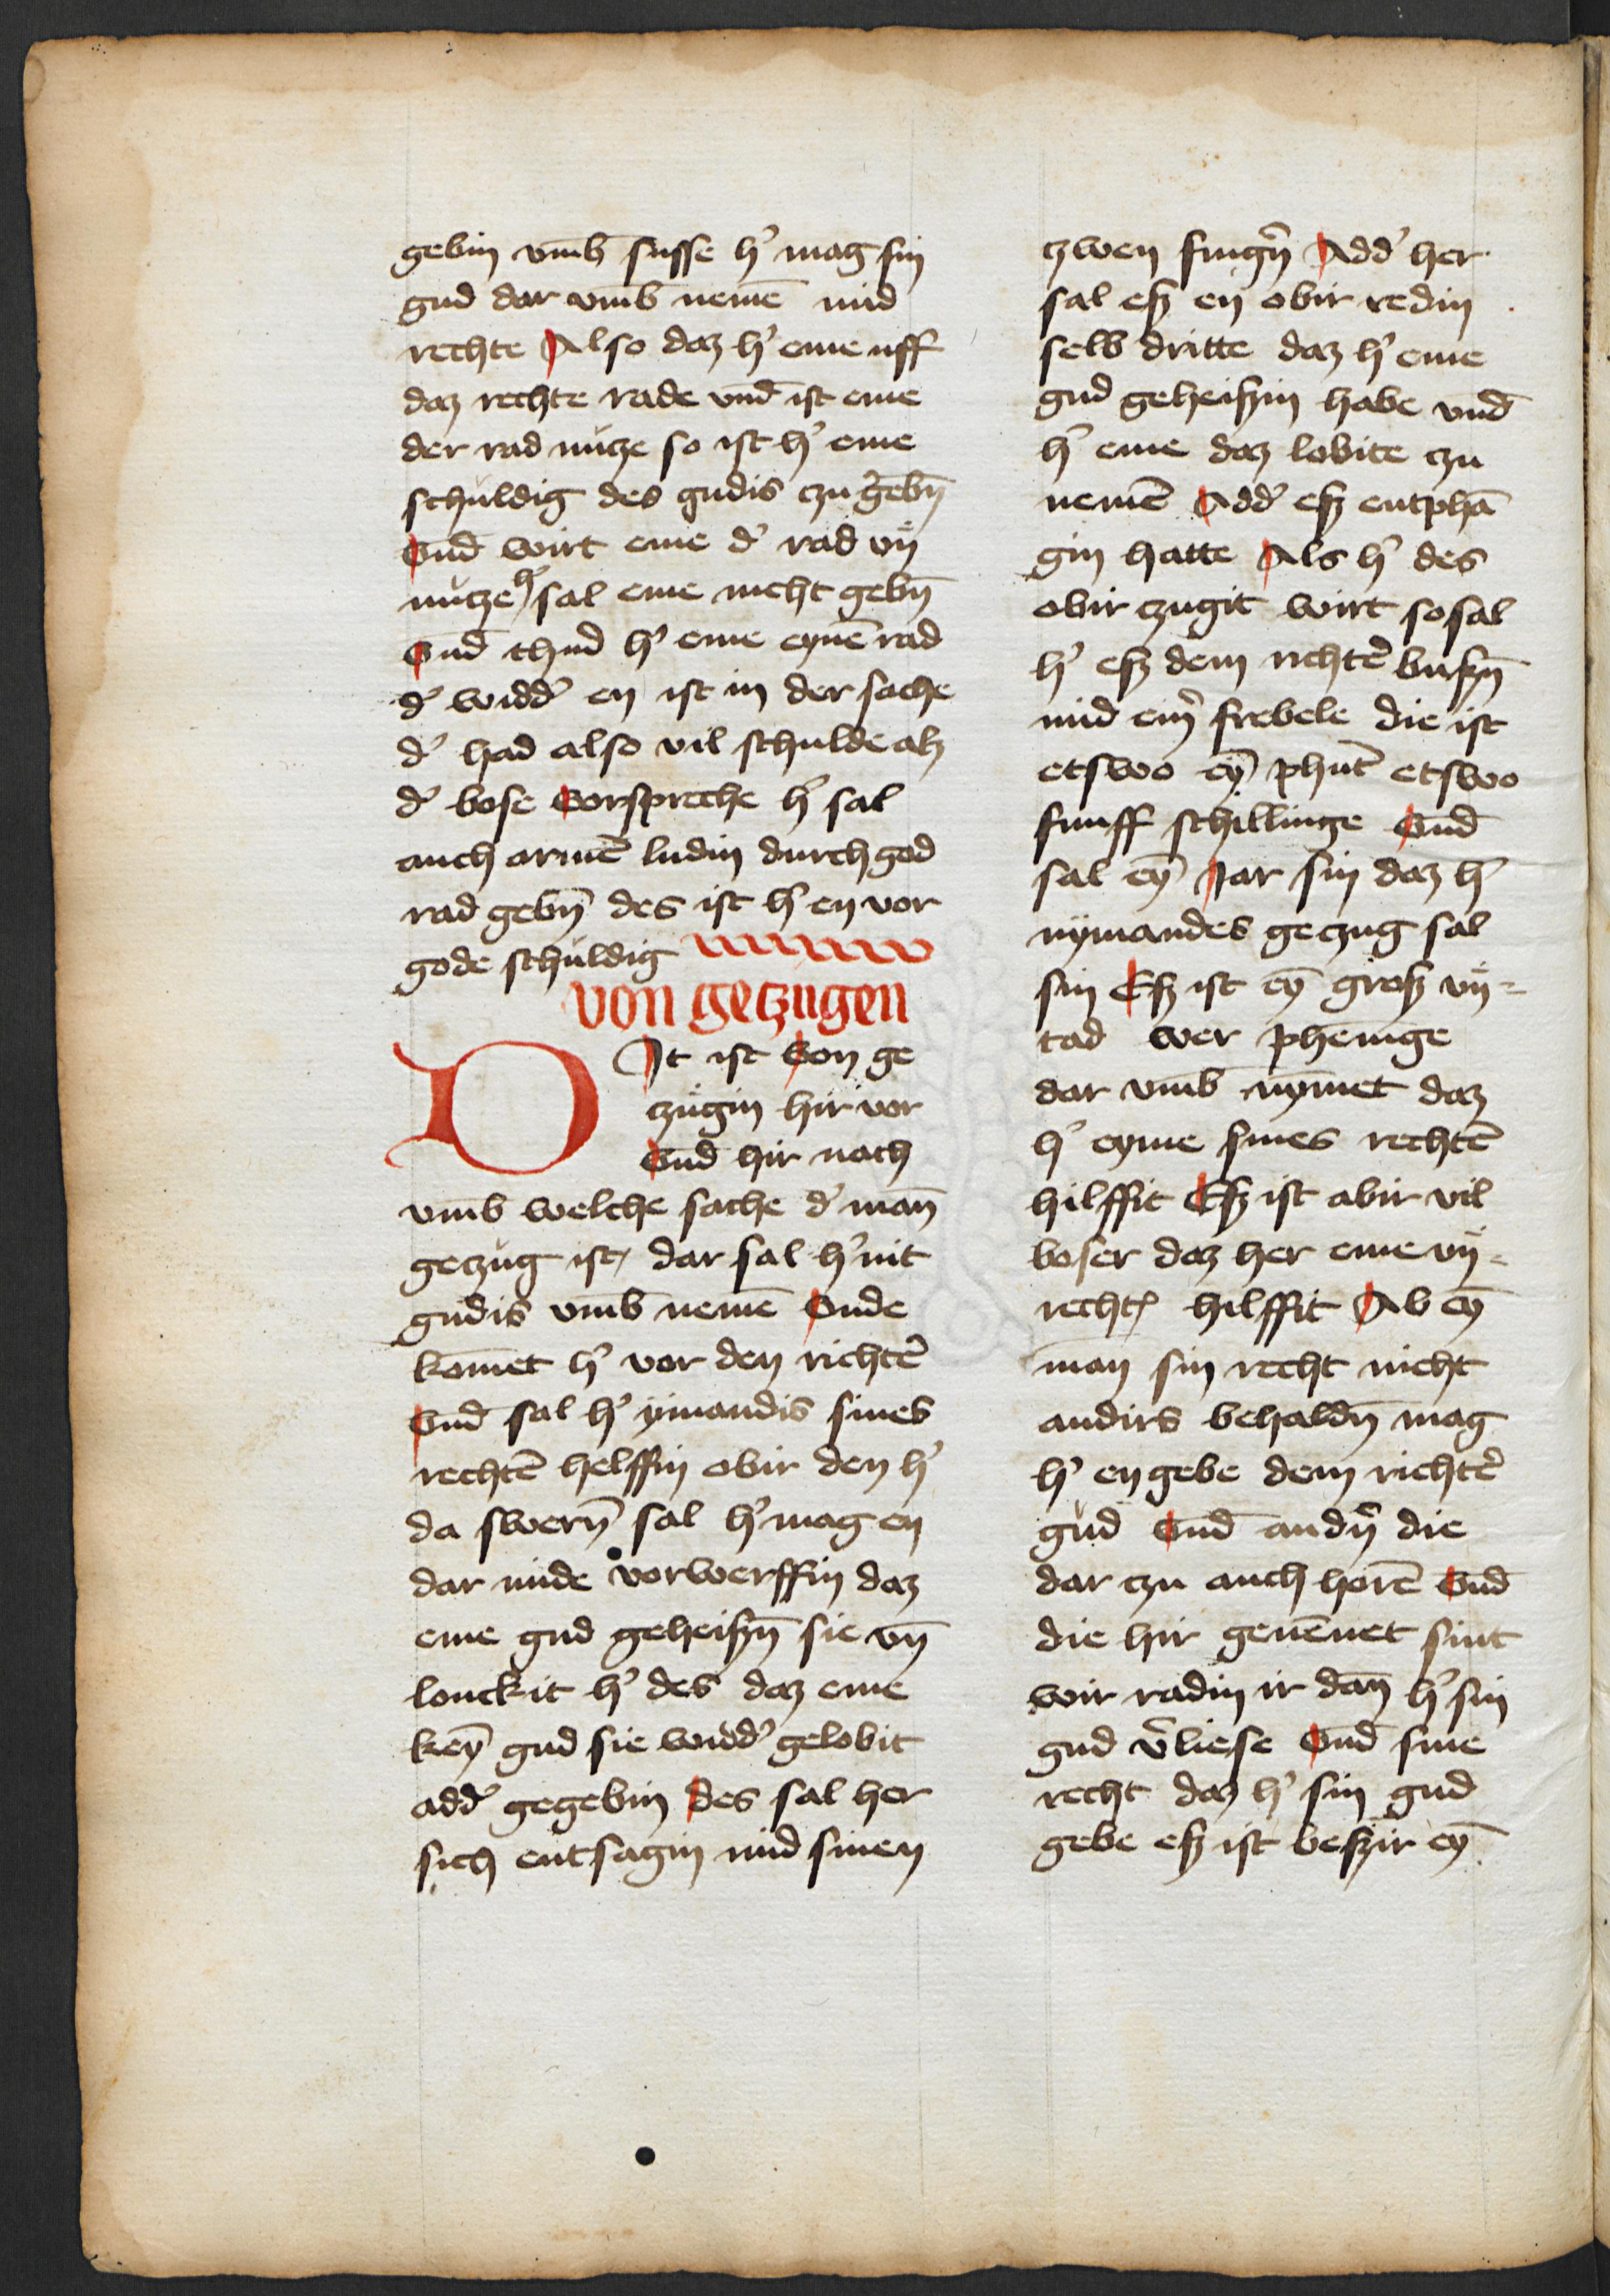 gebin vmb̄ susse h' mag sin
gud dar vmb̄ nemē mid
rechte Also daz h' eme uff
daz rechte rade vnd̄ ist eme
der rad nutze so ist h' eme
schuldig des gudis czu gebn̄
Vnd̄ wirt eme d' rad vn̄
nutze h' sal eme nicht gebn̄
Vnd̄ thud h' eme eynē rad
d' widd' en ist in der sache
d' had also vil schulde alz
d' bose Vorspreche h' sal
auch armē ludin durch god
rad gebn̄ des ist h' en vor
gode schuldig
von getzugen
DIt ist Von ge
czugin hir vor
Vnd̄ hir nach
vmb̄ welche sache d' man̄
geczug ist, dar sal h' nit
gudis vmb̄ nemē Vnde
kom̄et h' vor den richt'e
Vnd̄ sal h' ymandis sines
rechtē helffin obir den h'
da swern̄ sal h' mag en
dar mide vorwerffin daz
eme gud geheiszn̄ sie vn̄
louckit h' des daz eme
keȳ gud sie widd' gelobit
add' gegebin des sal her
sich entsagin mid sinen
czwen fing'n Add' her
sal esz en obir redin
selb dritte daz h' eme
gud geheiszin habe vnd̄
h' eme daz lobite czu
nemē Add' esz entphā
gin hatte Als h' des
obir czugit wirt so sal
h' esz dem richt'e buszn̄
mid ein' frebele die ist
etswo eȳ phūt etswo
funff schillinge Vnd̄
sal eȳ Jar sin daz h'
nymandes geczug sal
sin Esz ist eȳ grosz vn̄=
tad wer phenīge
dar vmb̄ nym̄et daz
h' eyme sines rechtē
hilffit Esz ist abir vil
boser daz her eme vn̄=
recht' hilffit Ab eȳ
man sin recht nicht
andirs behaldn̄ mag
h' en gebe dem richt'e
gud Vnd̄ and'n die
dar czu auch horē Vnd̄
die hir genēnet sint
wir radin ir dan̄ h' sin
gud v'liese Vnd̄ sine
recht daz h' sin gud
gebe esz ist beszir eȳ